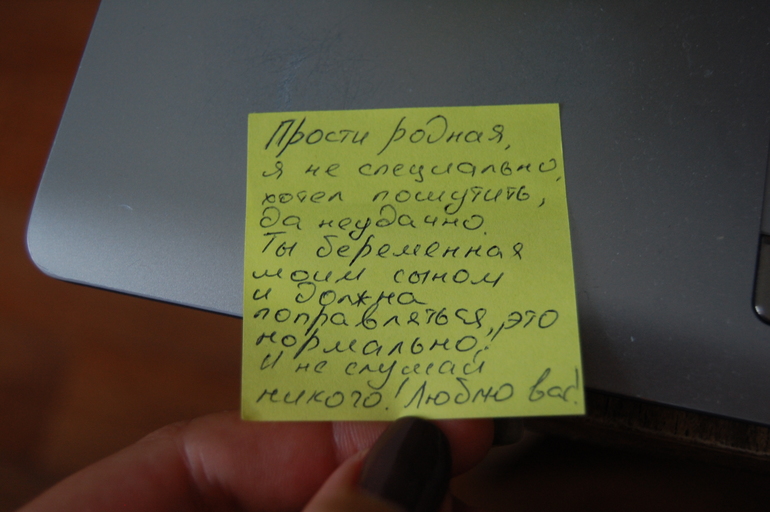 Прости родная,
я не специально,
хотел пошутить,
да неудачно.
Ты беременная
моим сыном
и должна
поправляться, это
нормально!
И не слушай
никого! Люблю вас!